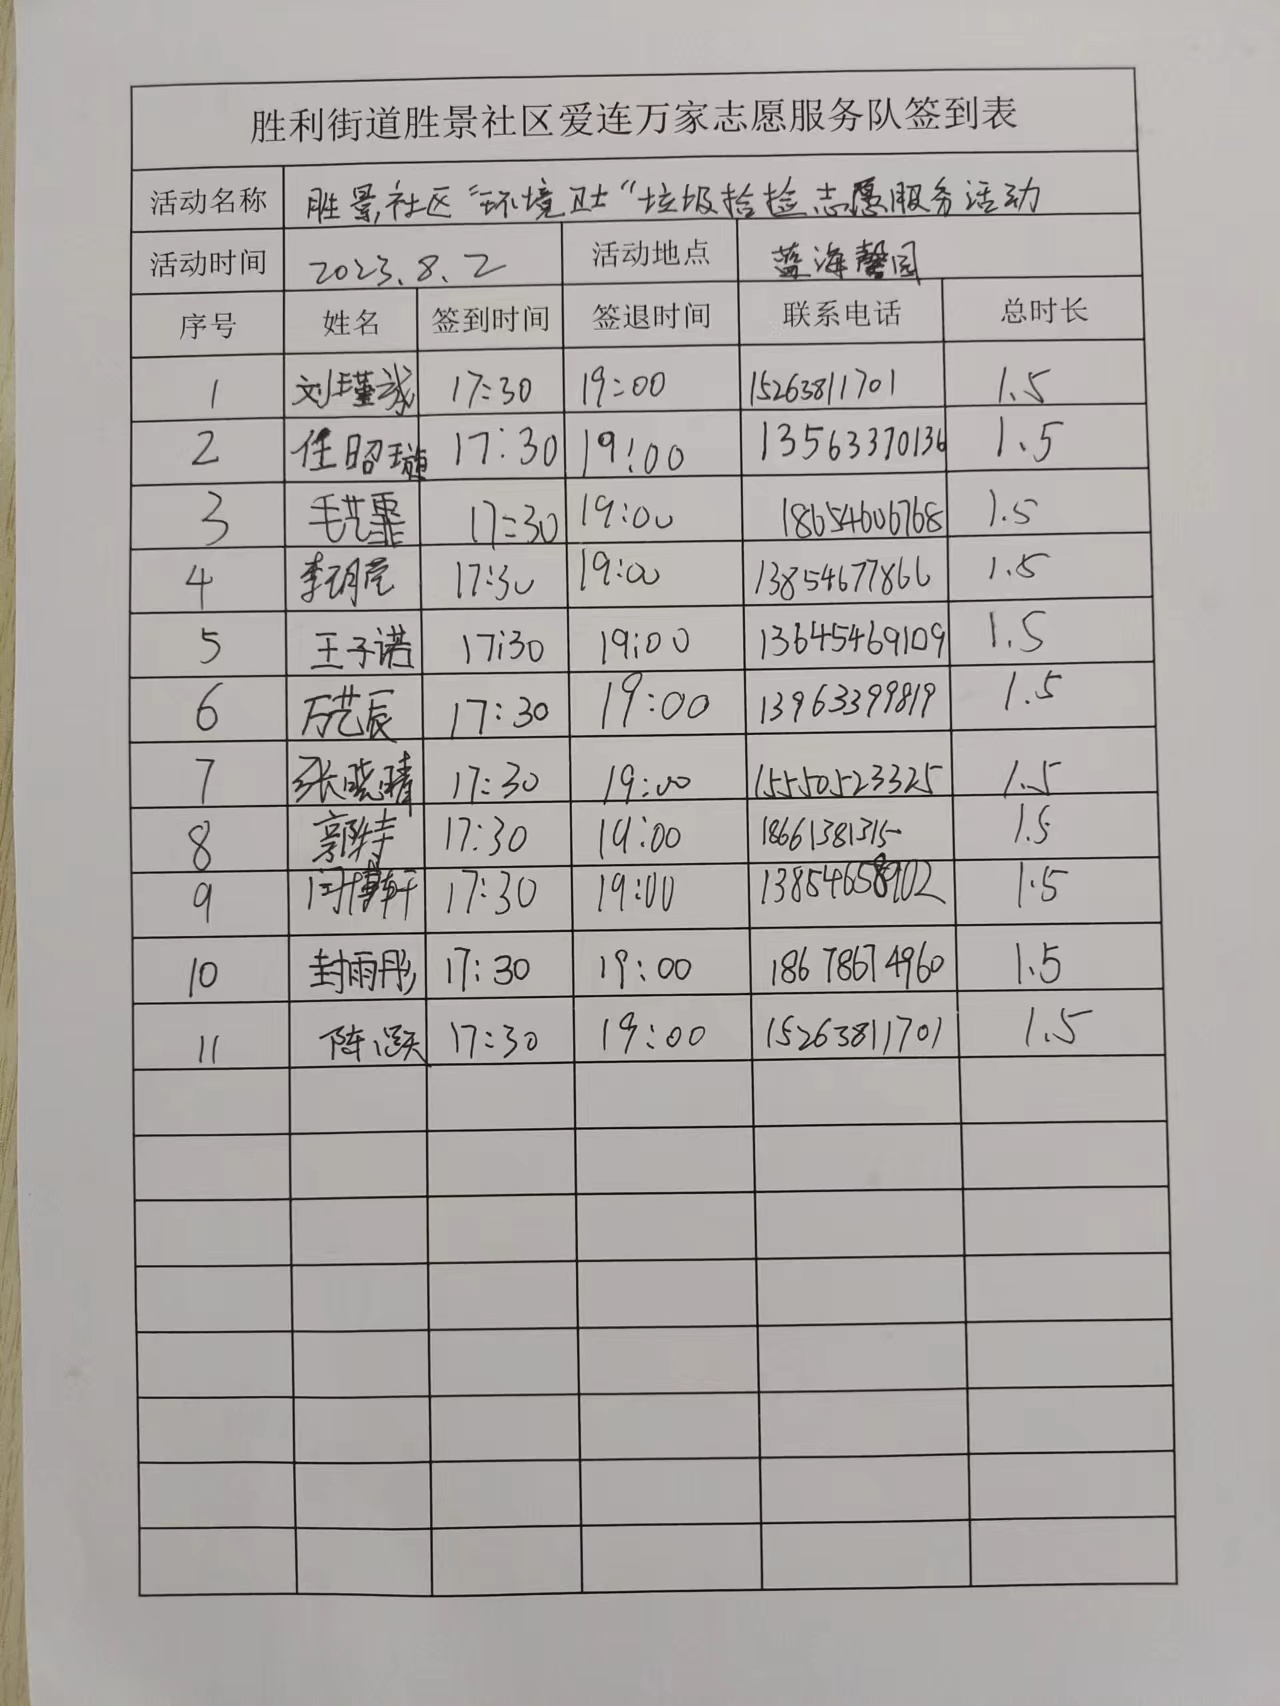 胜利街道胜景社区爱连万家志愿服务队签到表
活动名称 胜景社区"环境卫士"垃圾拾捡志愿服务活动
活动时间 2023.8.2 活动地点 蓝海馨园
序号 姓名 签到时间 签退时间 联系电话 总时长
1 刘瑾诚 17:30 19:00 15263811701 1.5
2 任昭璇 17:30 19:00 13563370136 1.5
3 毛艺霏 17:30 19:00 18654606768 1.5
4 李玥莹 17:30 19:00 13854677866 1.5
5 王子诺 17:30 19:00 13645469109 1.5
6 万艺辰 17:30 19:00 13963399819 1.5
7 张晓晴 17:30 19:00 15550523325 1.5
8 17:30 19:00 18661381315 1.5
9 闫博轩 17:30 19:00 13854658902 1.5
10 封雨彤 17:30 19:00 18678674960 1.5
11 陈 17:30 19:00 15263811701 1.5